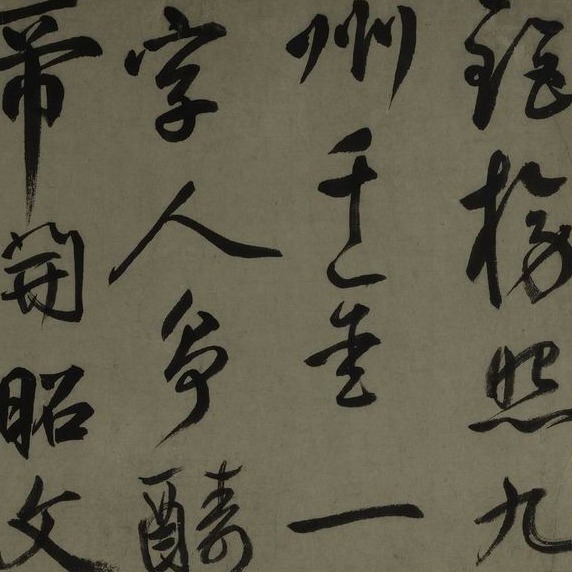 照九
州千金一
字人爭酬
帝開昭文